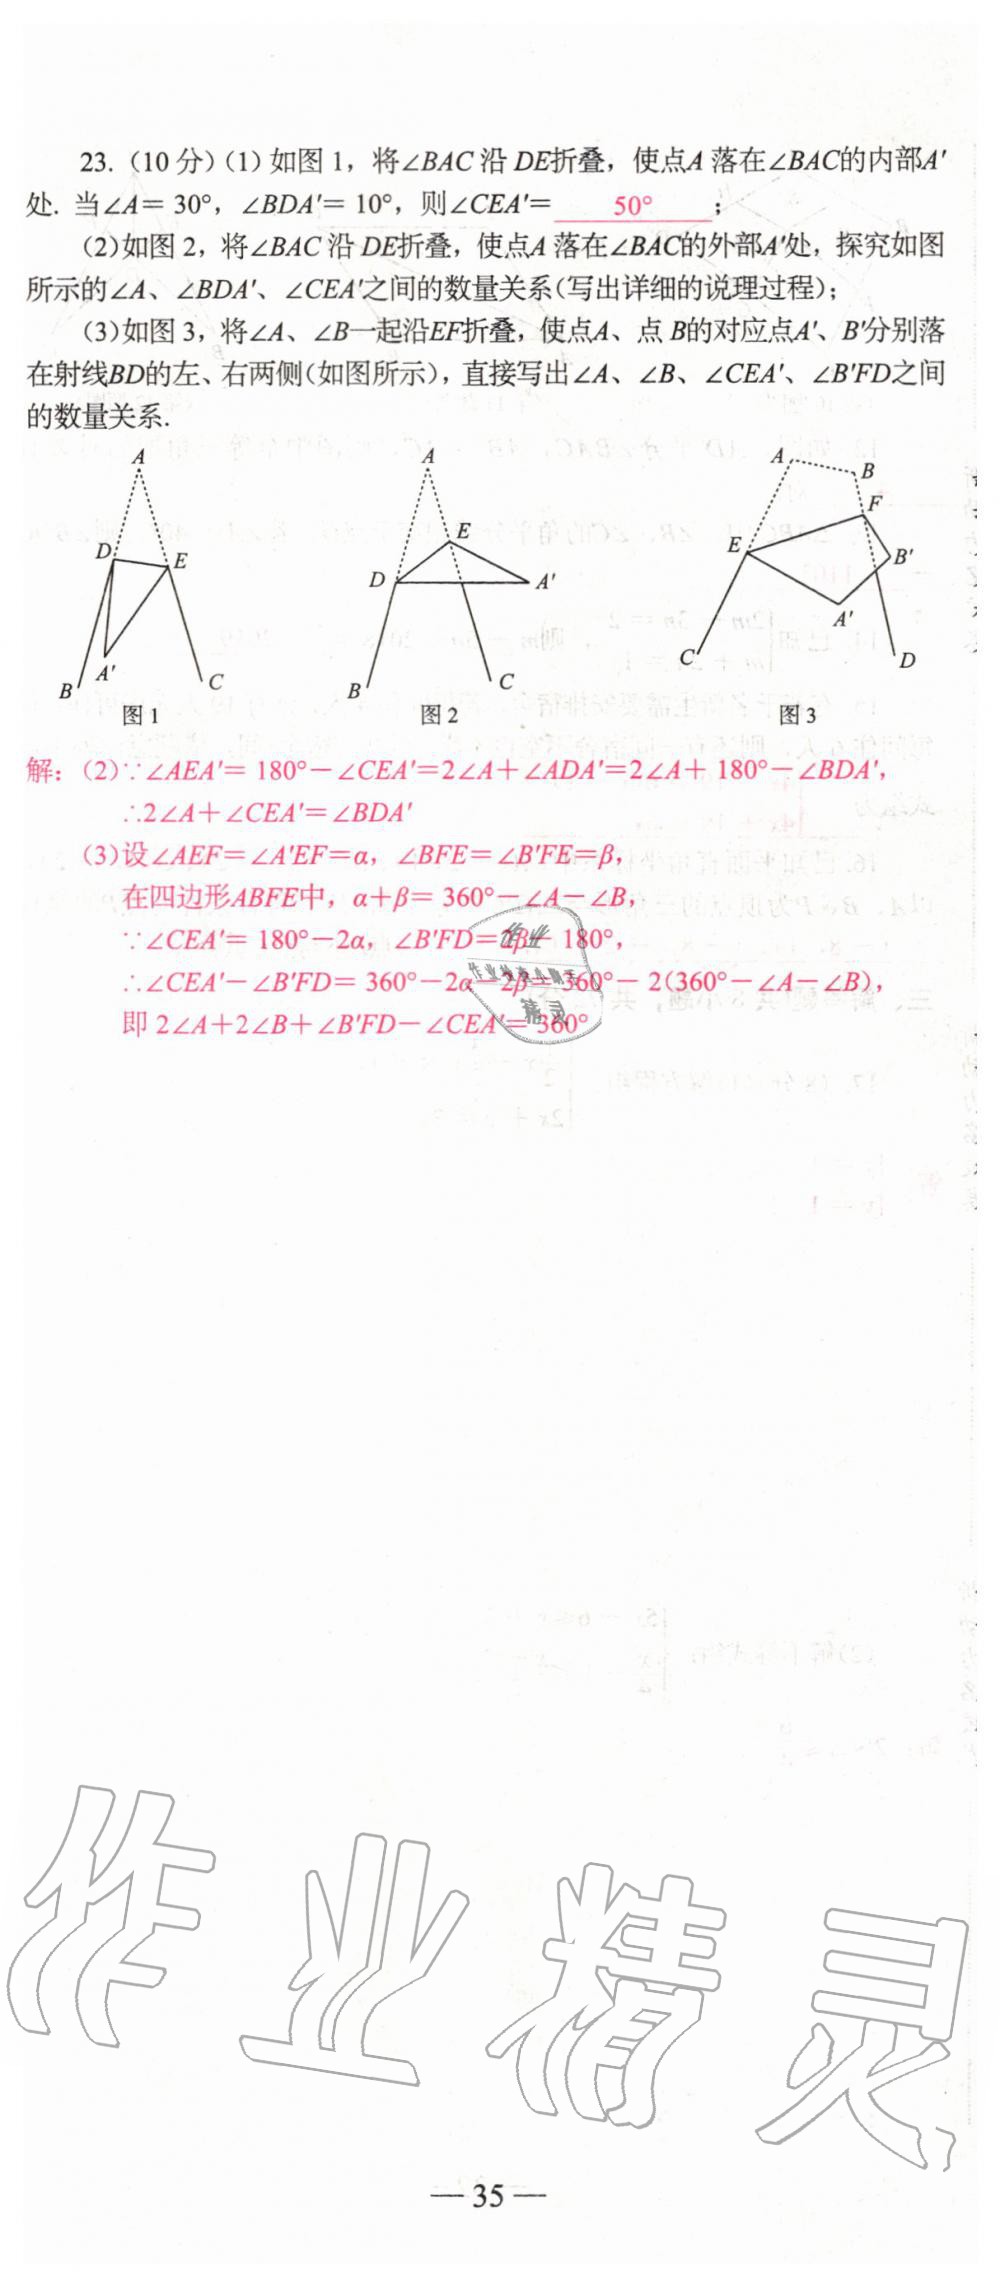 23.（10 分）（1）如图 1，将∠BAC 沿 DE折叠，使点A 落在∠BAC的内部A′
处. 当∠A= 30°，∠BDA′= 10°，则∠CEA′= 50° ；
（2）如图 2，将∠BAC 沿 DE折叠，使点A 落在∠BAC的外部A′处，探究如图
所示的∠A、∠BDA′、∠CEA′之间的数量关系（写出详细的说理过程）；
（3）如图 3，将∠A、∠B一起沿EF折叠，使点A、点 B的对应点A′、B′分别落
在射线BD的左、右两侧（如图所示），直接写出∠A、∠B、∠CEA′、∠B′FD之间
的数量关系.
A
D
E
A′
B
C
图 1
A
E
D
A′
B
C
图 2
A
B
F
E
B′
A′
C
D
图 3
解：（2）∵∠AEA′= 180°−∠CEA′=2∠A+∠ADA′=2∠A+ 180°−∠BDA′，
∴2∠A+∠CEA′=∠BDA′
（3）设∠AEF=∠A′EF=α，∠BFE=∠B′FE=β，
在四边形ABFE中，α+β= 360°−∠A−∠B，
∵∠CEA′= 180°−2α，∠B′FD=2β− 180°，
∴∠CEA′−∠B′FD= 360°−2α−2β= 360°− 2（360°−∠A−∠B），
即 2∠A+2∠B+∠B′FD−∠CEA′= 360°
作业
精灵
作业精灵
— 35 —